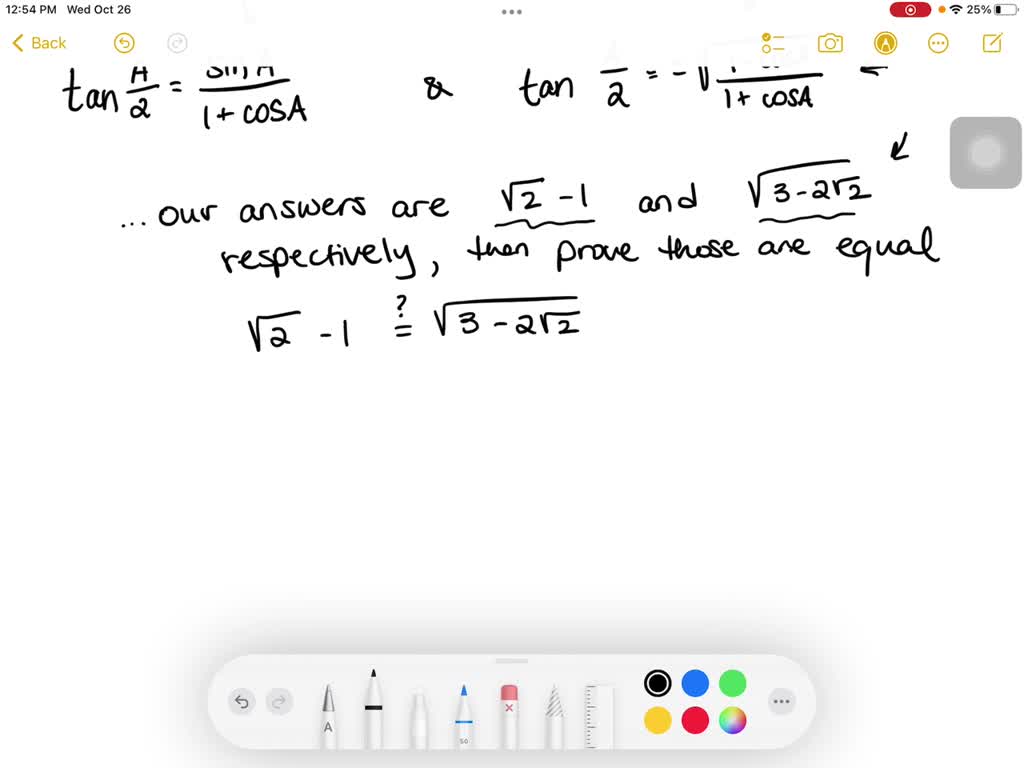 12:54 PM Wed Oct 26
25%
Back
tan A/2 = sin A / 1 + cosA & tan /2 = -√ / 1 + cosA
... our answers are √2 - 1 and √3 - 2√2
respectively, then prove those are equal
√2 - 1 ?= √3 - 2√2
A
50